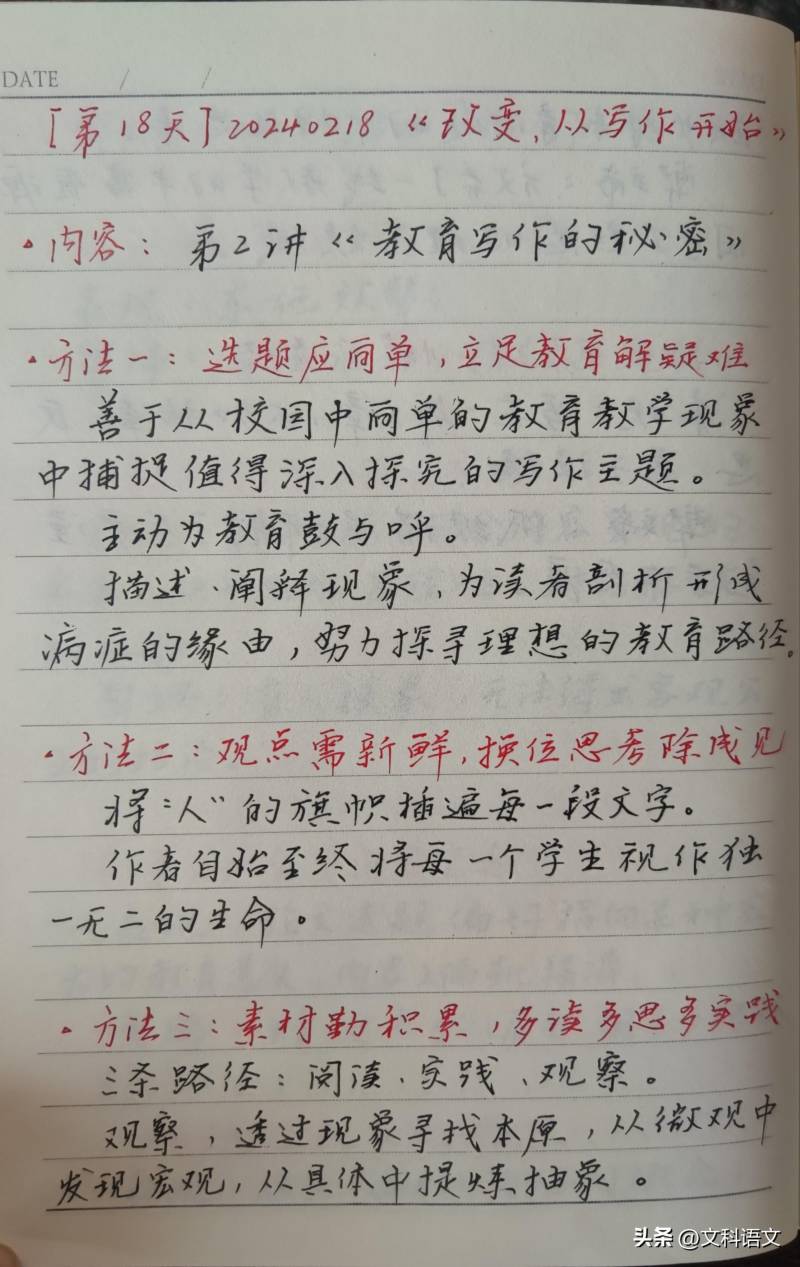 DATE / /
[第18天] 20240218《改变,从写作开始》
·内容:第2讲《教育写作的秘密》
·方法一:选题应简单,立足教育解疑难
善于从校园中简单的教育教学现象
中捕捉值得深入探究的写作主题。
主动为教育鼓与呼。
描述、阐释现象,为读者剖析形成
病症的缘由,努力探寻理想的教育路径。
·方法二:观点需新鲜,换位思考除成见
将“人”的旗帜插遍每一段文字。
作者自始至终将每一个学生视作独
一无二的生命。
·方法三:素材勤积累,多读多思多实践
三条路径:阅读、实践、观察。
观察,透过现象寻找本原,从微观中
发现宏观,从具体中提炼抽象。
头条 @文科语文